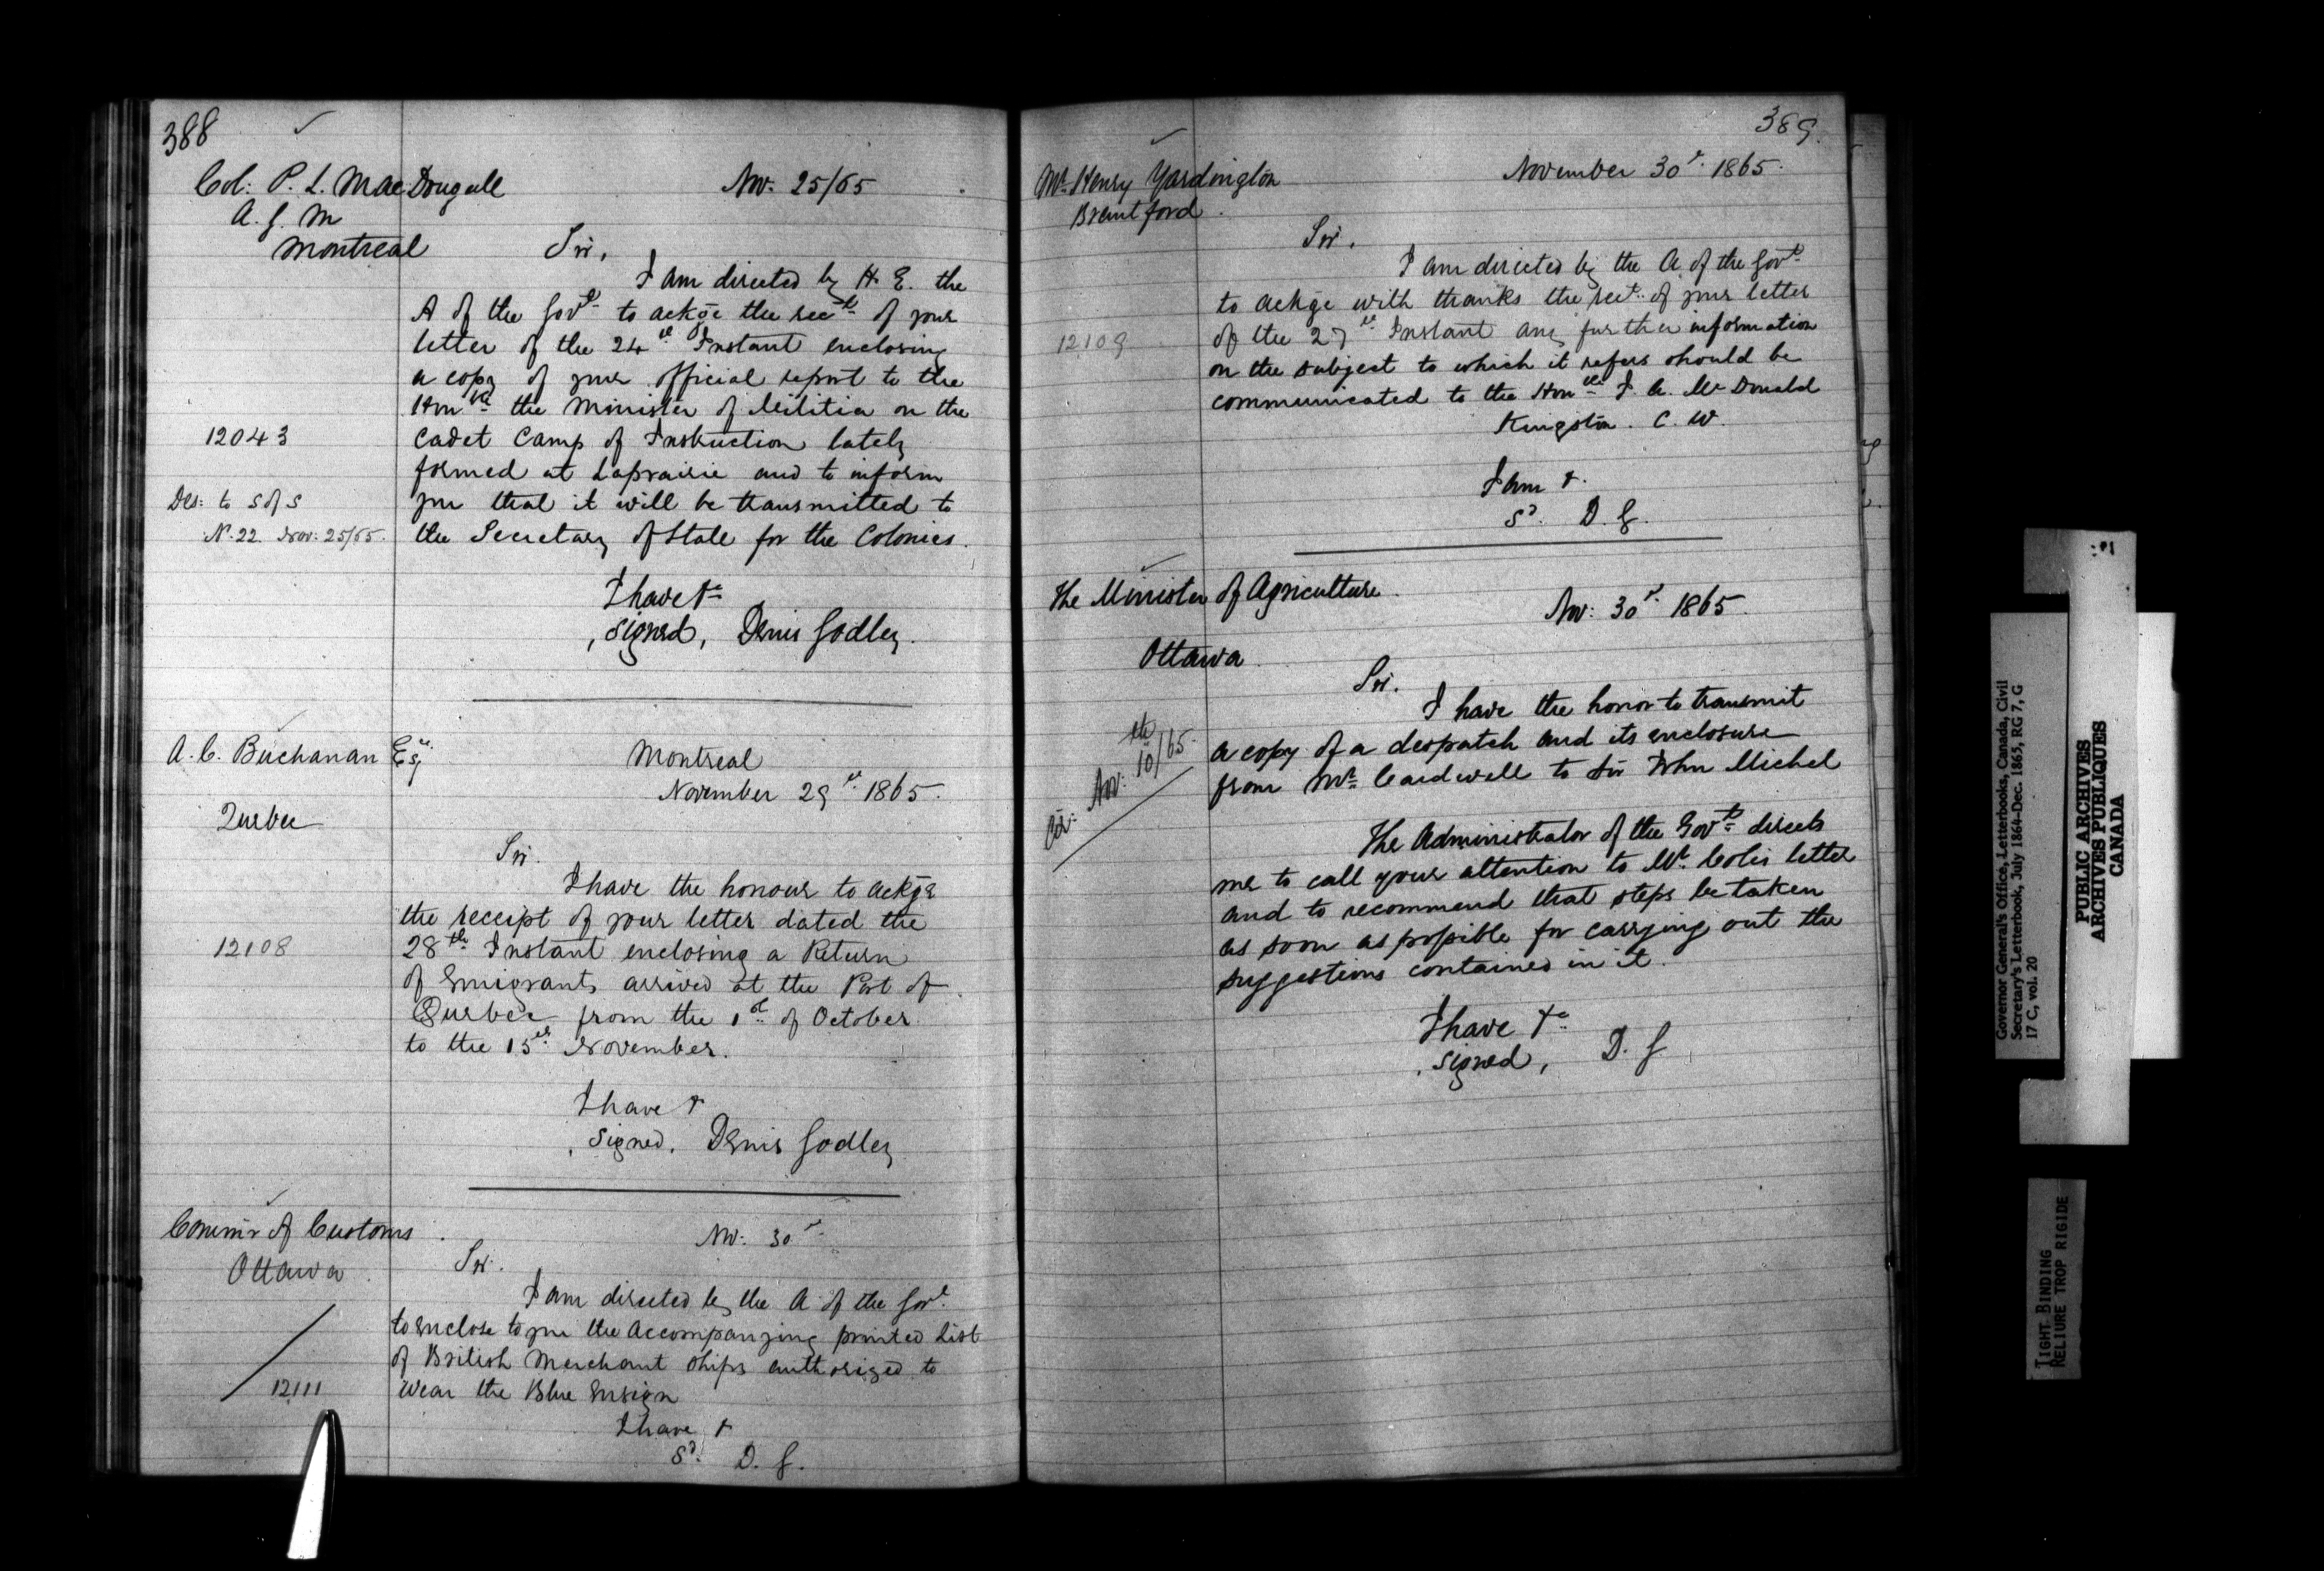 388
Col: P. L. MacDougall
A. G. M
Montreal
Nov: 25/65
Sir,
I am directed by H. E. the
A of the Govt. to ackge the rect. of your
letter of the 24th Instant enclosing
a copy of your official report to the
Honble the Minister of Militia on the
12043
Cadet Camp of Instruction lately
formed at Laprairie and to inform
Des: to S of S
you that it will be transmitted to
N. 22. Nov: 25/65.
the Secretary of State for the Colonies.
I have &c
Signed, Denis Godley.
A. C. Buchanan Esqre.
Quebec
Montreal
November 29th. 1865.
Sir.
I have the honour to ackge
the receipt of your letter dated the
12108
28th Instant enclosing a Return
of Emigrants arrived at the Port of
Quebec from the 1st of October
to the 15th November.
I have &
Signed. Denis Godley
Commr of Customs.
Ottawa.
Nov: 30th
Sir.
I am directed by the A of the Govt.
to enclose to you the accompanying printed List
of British Merchant Ships authorized to
12111
wear the Blue Ensign
I have &
Sd. D. G.
389.
Mr. Henry Yardington
Brantford.
November 30th. 1865.
Sir.
I am directed by the A. of the Govt.
to ackge with thanks the rect. of your letter
12109
of the 27th Instant any further information
on the subject to which it refers should be
communicated to the Honble J. A. McDonald
Kingston. C. W.
I am &.
Sd. D. G.
The Minister of Agriculture.
Ottawa.
Nov: 30th. 1865.
Sir.
I have the honor to transmit
a copy of a despatch and its enclosure
from Mr. Cardwell to Sir John Michel
Nov: 10th/65.
The Administrator of the Govt. directs
me to call your attention to Mr. Coles letter
and to recommend that steps be taken
as soon as possible for carrying out the
suggestions contained in it.
I have &c
Signed, D. G
Governor General's Office, Letterbooks, Canada, Civil
Secretary's Letterbook, July 1864-Dec. 1865, RG 7, G
17 C, vol. 20
PUBLIC ARCHIVES
ARCHIVES PUBLIQUES
CANADA
TIGHT BINDING
RELIURE TROP RIGIDE